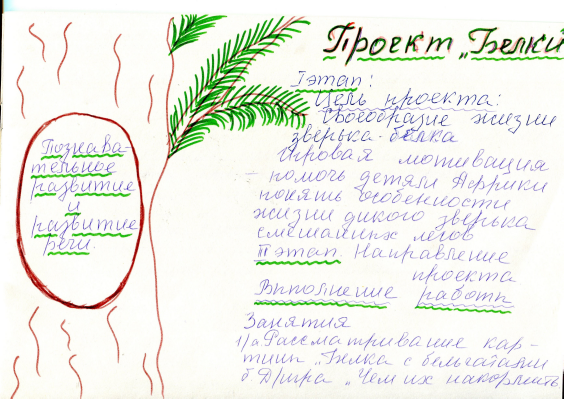 Проект „Белки
I этап:
Цель проекта:
Своеобразие жизни
зверька-белка
Игровая мотивация
- помочь детям Африки
понять особенности
жизни дикого зверька
смешанных лесов
II этап Направление
проекта
Выполнение работы
Занятия
1/а. Рассматривание кар-
тины „Белка с бельчатами
б Д/игра „Чем их накормить
Познава-
тельное
развитие
и
развитие
речи.